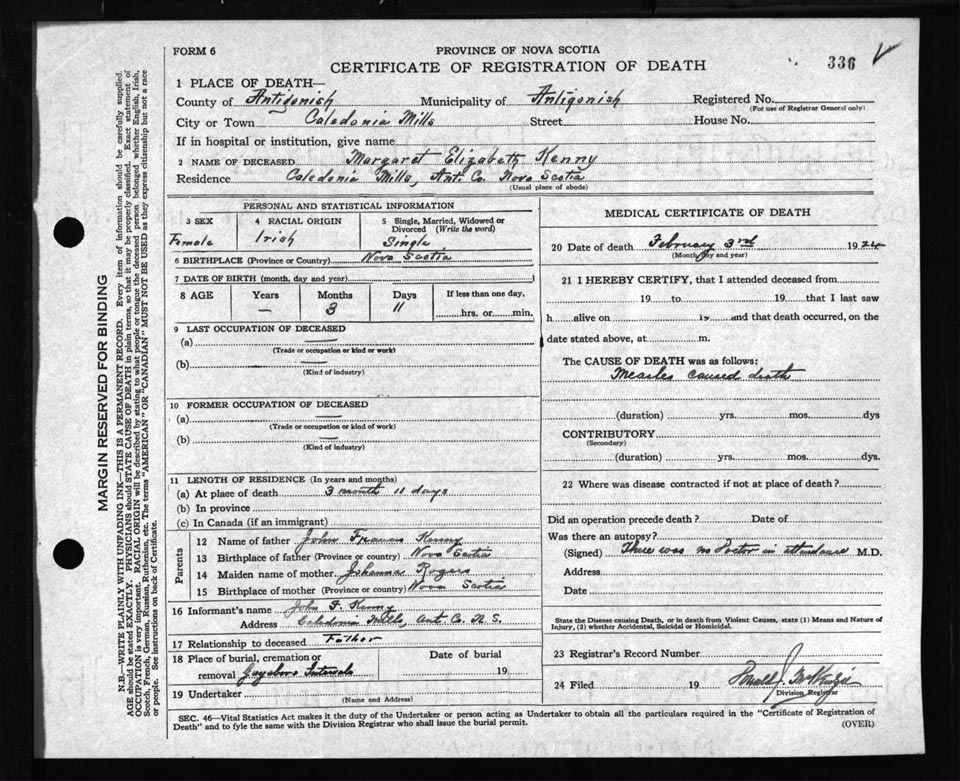 FORM 6
PROVINCE OF NOVA SCOTIA
336
CERTIFICATE OF REGISTRATION OF DEATH
1 PLACE OF DEATH—
County of Antigonish Municipality of Antigonish Registered No.
(For use of Registrar General only)
City or Town Caledonia Mills Street House No.
If in hospital or institution, give name
2 NAME OF DECEASED Margaret Elizabeth Kenny
Residence Caledonia Mills, Ant. Co. Nova Scotia
(Usual place of abode)
PERSONAL AND STATISTICAL INFORMATION
3 SEX 4 RACIAL ORIGIN 5 Single, Married, Widowed or
Divorced (Write the word)
Female Irish Single
6 BIRTHPLACE (Province or Country) Nova Scotia
7 DATE OF BIRTH (month, day and year)
8 AGE Years Months Days If less than one day,
— 3 11 hrs. or min.
9 LAST OCCUPATION OF DECEASED
(a) —
(Trade or occupation or kind or work)
(b) —
(Kind of industry)
10 FORMER OCCUPATION OF DECEASED
(a) —
(Trade or occupation or kind of work)
(b) —
(Kind of industry)
11 LENGTH OF RESIDENCE (In years and months)
(a) At place of death 3 month 11 days
(b) In province
(c) In Canada (if an immigrant)
Parents
12 Name of father John Francis Kenny
13 Birthplace of father (Province or country) Nova Scotia
14 Maiden name of mother Johanna Rogers
15 Birthplace of mother (Province or country) Nova Scotia
16 Informant's name John F. Kenny
Address Caledonia Mills, Ant. Co. N.S.
17 Relationship to deceased Father
18 Place of burial, cremation or Date of burial
removal 19
19 Undertaker
(Name and Address)
MEDICAL CERTIFICATE OF DEATH
20 Date of death February 3rd 192
(Month, day and year)
21 I HEREBY CERTIFY, that I attended deceased from
19 to 19 that I last saw
h alive on 19 and that death occurred, on the
date stated above, at m.
The CAUSE OF DEATH was as follows:
Measles caused death
(duration) yrs. mos. dys
CONTRIBUTORY
(Secondary)
(duration) yrs. mos. dys.
22 Where was disease contracted if not at place of death?
Did an operation precede death? Date of
Was there an autopsy?
(Signed) There was no Doctor in attendance M.D.
Address
Date
State the Disease causing Death, or in death from Violent Causes, state (1) Means and Nature of
Injury, (2) whether Accidental, Suicidal or Homicidal.
23 Registrar's Record Number
24 Filed 19
Division Registrar
SEC. 46—Vital Statistics Act makes it the duty of the Undertaker or person acting as Undertaker to obtain all the particulars required in the "Certificate of Registration of
Death" and to fyle the same with the Division Registrar who shall issue the burial permit.
(OVER)
MARGIN RESERVED FOR BINDING
N.B.—WRITE PLAINLY WITH UNFADING INK—THIS IS A PERMANENT RECORD. Every item of information should be carefully supplied.
AGE should be stated EXACTLY. PHYSICIANS should STATE CAUSE OF DEATH in plain terms, so that it may be properly classified. Exact statement of
OCCUPATION is very important. RACIAL ORIGIN will be described by stating to what people or tongue the deceased person belonged whether English, Irish,
Scotch, French, German, Russian, Ruthenian, etc. The terms "AMERICAN" OR "CANADIAN" MUST NOT BE USED as they express citizenship but not a race
or people. See instructions on back of Certificate.